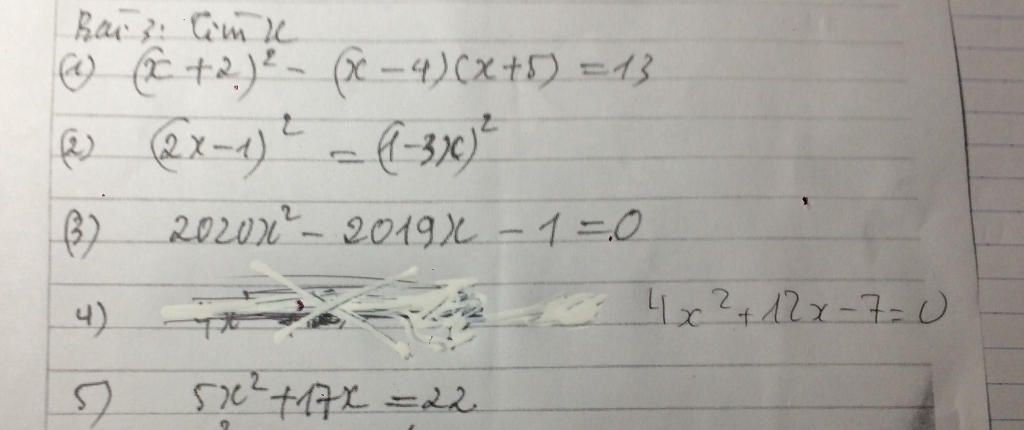 Bài 3: Tìm x
(1) (x + 2)² - (x - 4)(x + 5) = 13
(2) (2x - 1)² = (1 - 3x)²
(3) 2020x² - 2019x - 1 = 0
4) 4x² + 12x - 7 = 0
5) 5x² + 17x = 22